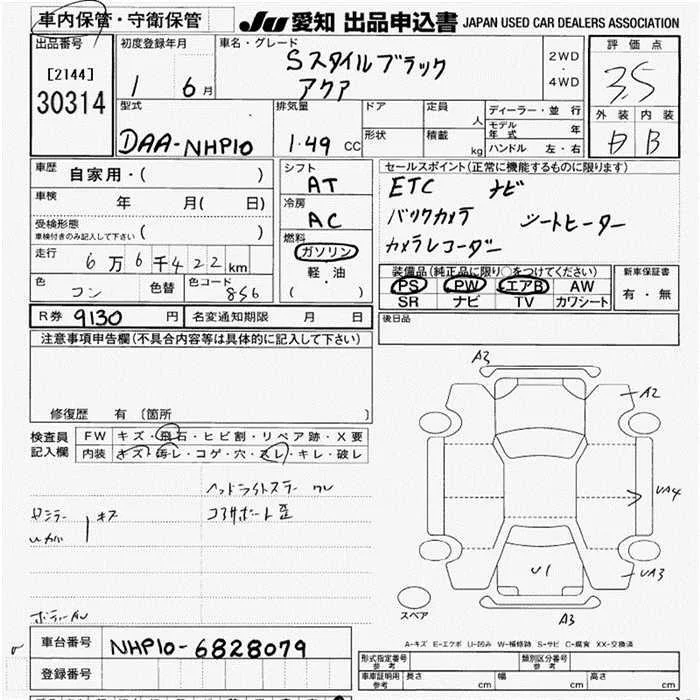 車内保管・守衛保管 JU 愛知 出品申込書 JAPAN USED CAR DEALERS ASSOCIATION
出品番号 初度登録年月 車名・グレード 評価点
[2144] 1 6月 Sスタイルブラック 2WD・4WD 3.5
30314 アクア 外装 内装
型式 排気量 ドア 定員 人 ディーラー・並行 B
DAA-NHP10 1.49 CC 形状 積載 kg モデル年式 年
ハンドル 左・右
車歴 自家用・( ) シフト AT セールスポイント(正常に機能するものに限ります)
車検 年 月( 日) 冷房 AC ETC ナビ
受検形態 バックカメラ シートヒーター
車検付きのみ記入して下さい ( ) 燃料 ガソリン カメラレコーダー
走行 6万6千422km 軽・油 装備品(純正品に限り○をつけてください) 新車保証書
色 コン 色替 色コード 8S6 ( ) PS PW エアB AW 有・無
SR ナビ TV カワシート
R券 9130 円 名変通知期限 月 日 後日品
注意事項申告欄(不具合内容等は具体的に記入して下さい)
修復歴 有 〔箇所 〕
検査員記入欄 FW キズ・飛石・ヒビ割・リペア跡・X要
内装 キズ・汚レ・コゲ・穴・スレ・キレ・破レ
A3
A2
UA4
UA3
U1
A3
スペア
A-キズ E-エクボ U-凹み W-補修跡 S-サビ C-腐食 XX-交換済
車台番号 NHP10-6828079 形式指定番号 参考 類別区分番号 参考
登録番号 車庫証明用 参考 長さ cm 幅 cm 高さ cm